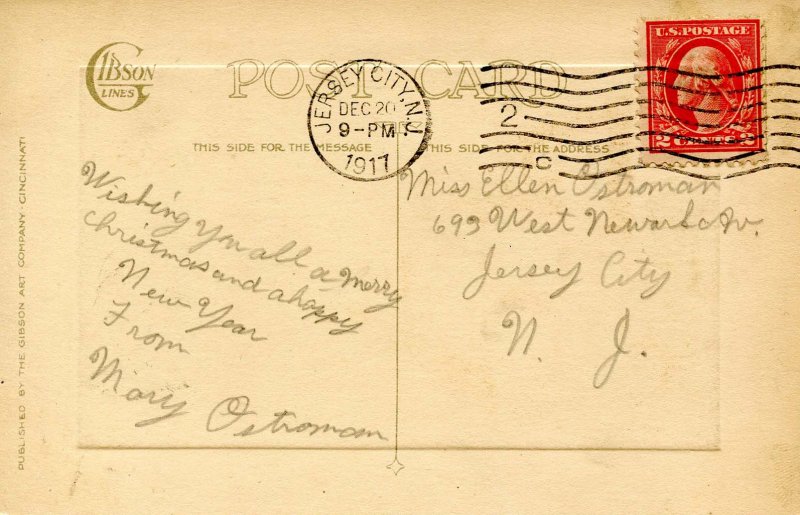 GIBSON
LINES
POST CARD
JERSEY CITY, N.J.
DEC 20
9-PM
1917
2
C
U.S. POSTAGE
2 CENTS 2
THIS SIDE FOR THE MESSAGE
THIS SIDE FOR THE ADDRESS
Wishing you all a merry
christmas and a happy
New Year
From
Mary Ostroman
Miss Ellen Ostroman
693 West Newark Av.
Jersey City
N. J.
PUBLISHED BY THE GIBSON ART COMPANY, CINCINNATI